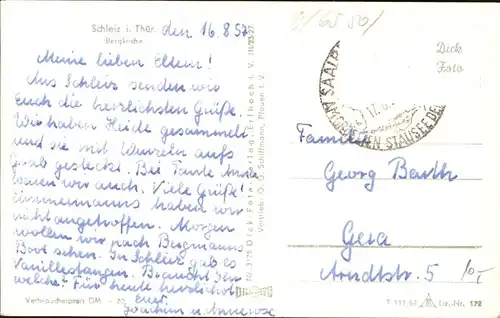 Schleiz i. Thür. den 16.8.57
Bergkirche
Meine lieben Eltern!
Aus Schleiz senden wir
Euch die herzlichsten Grüße.
Wir haben Heide gesammelt
und sie mit Wurzeln aufs
Grab gesteckt. Bei Tante Anna
waren wir auch. Viele Grüße!
Zimmermanns haben wir
nicht angetroffen. Morgen
wollen wir nach Bergmanns
Boot sehen. In Schleiz gab es
Vanillestangen. Braucht Ihr
welche? Für heute herzlichst
Eure
Joachim u. Annerose
Verbraucherpreis DM
Dick-Foto-Verlag Erlbach i. V.
Vertrieb: O. Schiffmann, Plauen i. V.
Dick
Foto
SAALTAL
STAUSEE DER
Familie
Georg Barth
Gera
Arndtstr. 5
Lfd.-Nr. 172